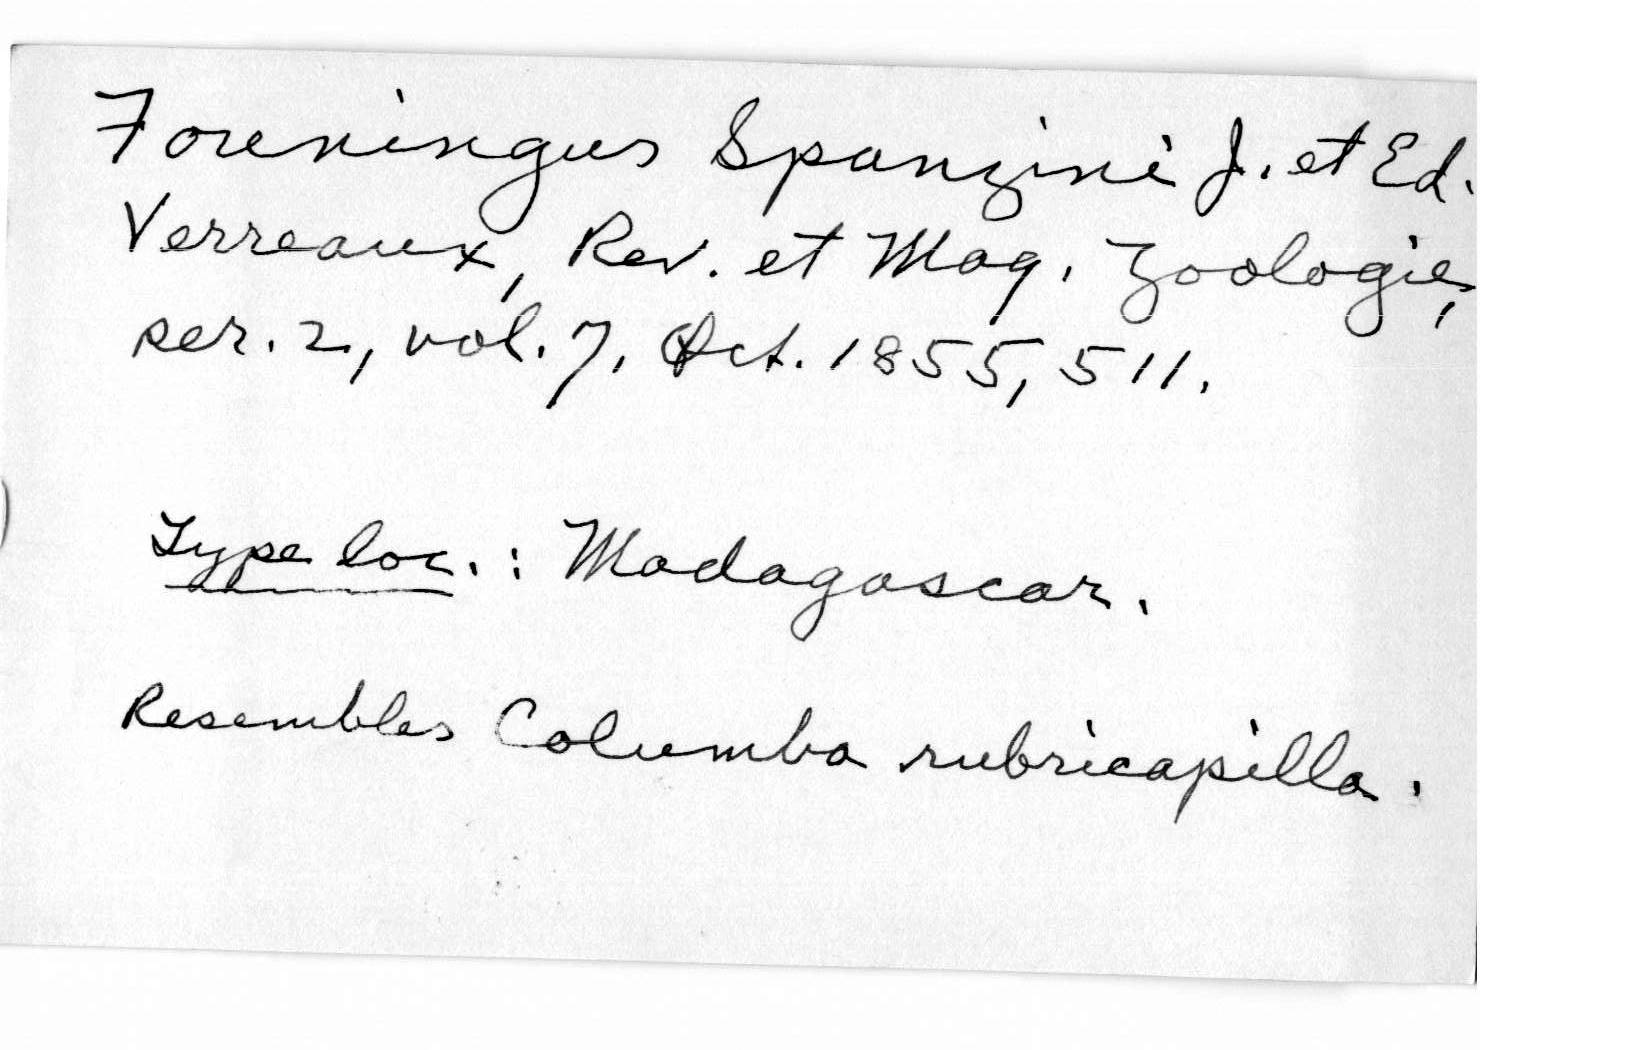 Foreningus Spanzini J. et Ed.
Verreaux, Rev. et Mag. Zoologie,
ser. 2, vol. 7, Oct. 1855, 511.
Type loc. : Madagascar.
Resembles Columba rubricapilla.